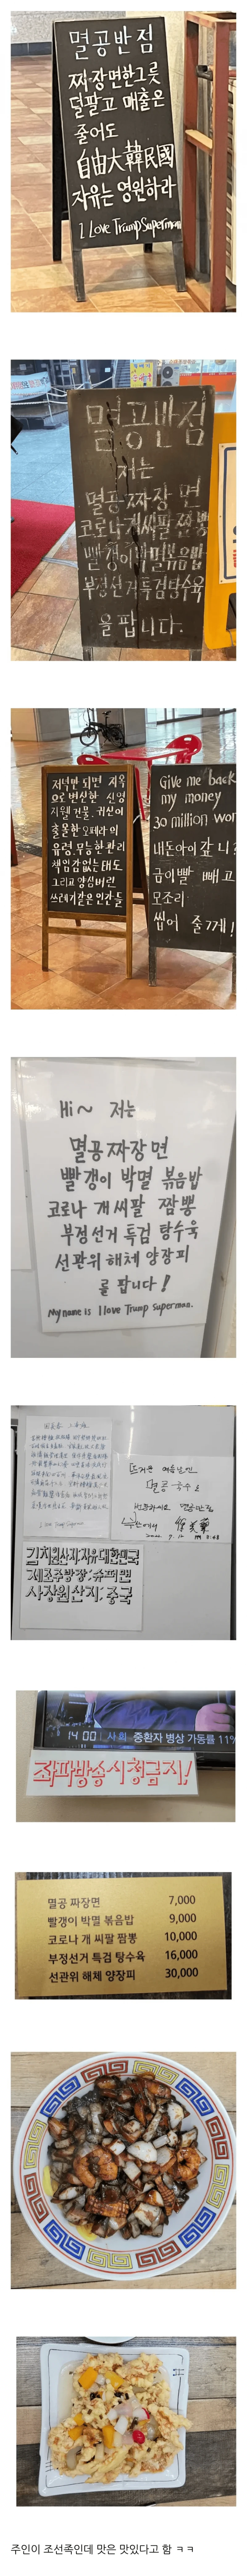 멸공반점
짜장면한그릇
덜팔고 매출은
줄어도
自由大韓民國
자유는 영원하라
I Love Trump Superman
멸공반점
저는
멸공 짜장 면
코로나 개씨팔 짬뽕
빨갱이 박멸 볶음밥
부정선거 특검 탕수육
을 팝니다.
저녁만 되면 지옥
으로 변신한 신영
지웰 건물. 귀신이
출몰한 오페라의
유령. 무능한 관리
책임감 없는 태도
그리고 양심버린
쓰레기같은 인간들
Give me back
my money
30 million won
내돈아이갚니?
금이빨 빼고
모조리
씹어 줄게!
Hi~ 저는
멸공 짜장 면
빨갱이 박멸 볶음밥
코로나 개 씨팔 짬뽕
부정선거 특검 탕수육
선관위 해체 양장피
를 팝니다!
My name is I love Trump superman.
I Love Trump Superman
뜨거운 여름날엔
멸콩국수로
번창하세요 멸공반점
김치원산지:자유대한민국
제조주방장:슈퍼맨
사장원산지:중국
14:00 사회 중환자 병상 가동률 11%
좌파방송시청금지!
멸공 짜장면 7,000
빨갱이 박멸 볶음밥 9,000
코로나 개 씨팔 짬뽕 10,000
부정선거 특검 탕수육 16,000
선관위 해체 양장피 30,000
주인이 조선족인데 맛은 맛있다고 함 ㅋㅋ